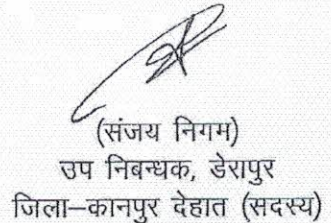 (संजय निगम)
उप निबन्धक, डेरापुर
जिला–कानपुर देहात (सदस्य)